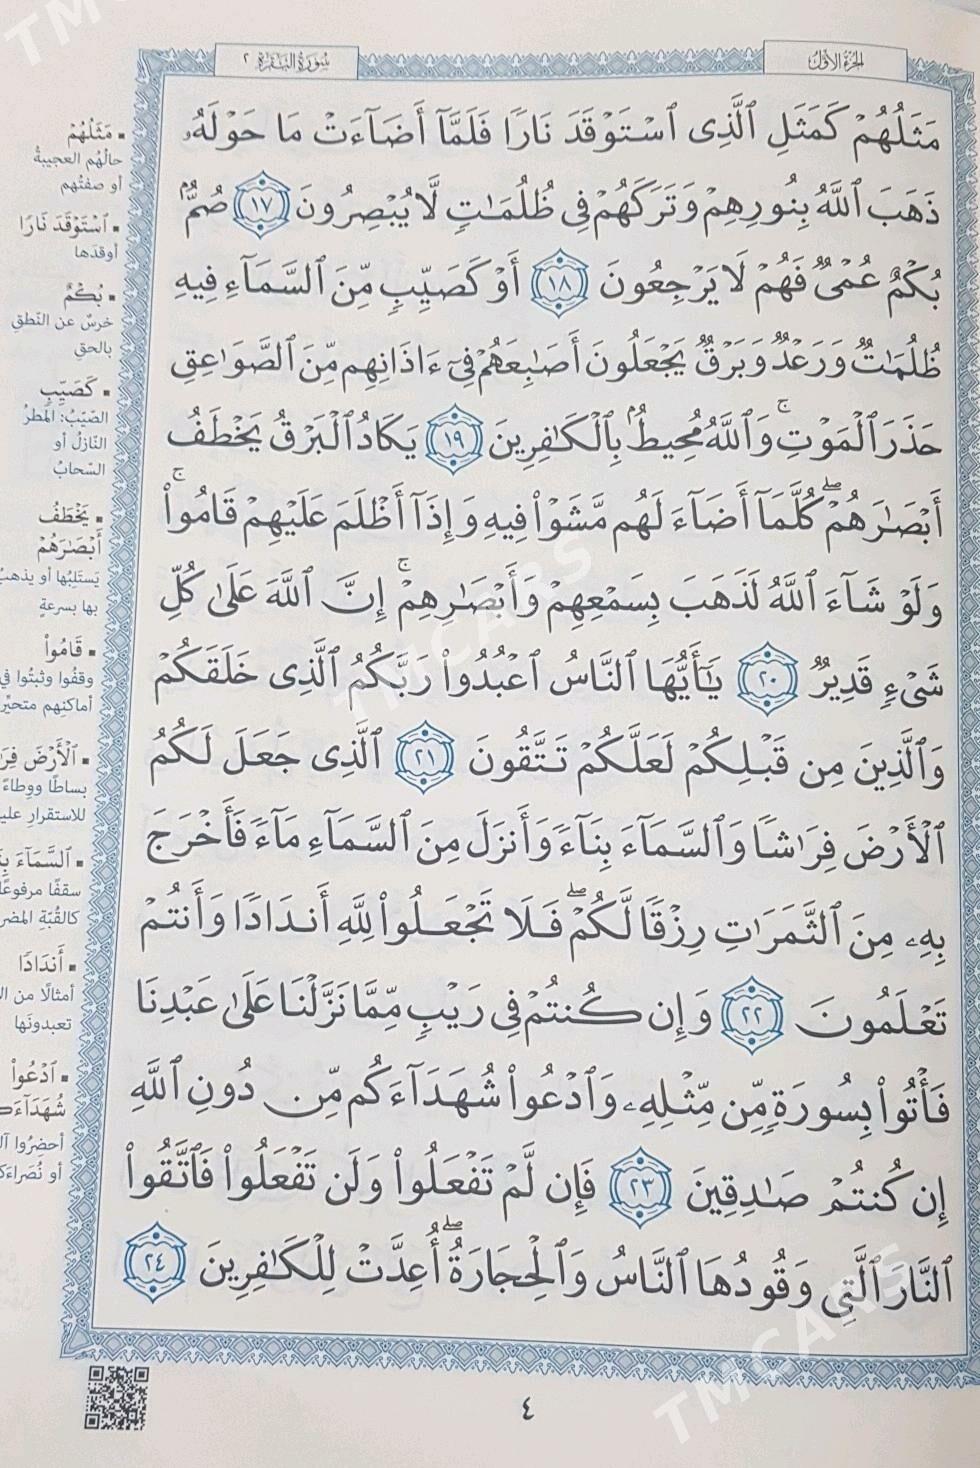 الجزء الأول
سورة البقرة ٢
مَثَلُهُمۡ كَمَثَلِ ٱلَّذِي ٱسۡتَوۡقَدَ نَارٗا فَلَمَّآ أَضَآءَتۡ مَا حَوۡلَهُۥ
ذَهَبَ ٱللَّهُ بِنُورِهِمۡ وَتَرَكَهُمۡ فِي ظُلُمَٰتٖ لَّا يُبۡصِرُونَ ١٧ صُمُّۢ
بُكۡمٌ عُمۡيٞ فَهُمۡ لَا يَرۡجِعُونَ ١٨ أَوۡ كَصَيِّبٖ مِّنَ ٱلسَّمَآءِ فِيهِ
ظُلُمَٰتٞ وَرَعۡدٞ وَبَرۡقٞ يَجۡعَلُونَ أَصَٰبِعَهُمۡ فِيٓ ءَاذَانِهِم مِّنَ ٱلصَّوَٰعِقِ
حَذَرَ ٱلۡمَوۡتِۚ وَٱللَّهُ مُحِيطُۢ بِٱلۡكَٰفِرِينَ ١٩ يَكَادُ ٱلۡبَرۡقُ يَخۡطَفُ
أَبۡصَٰرَهُمۡۖ كُلَّمَآ أَضَآءَ لَهُم مَّشَوۡاْ فِيهِ وَإِذَآ أَظۡلَمَ عَلَيۡهِمۡ قَامُواْۚ
وَلَوۡ شَآءَ ٱللَّهُ لَذَهَبَ بِسَمۡعِهِمۡ وَأَبۡصَٰرِهِمۡۚ إِنَّ ٱللَّهَ عَلَىٰ كُلِّ
شَيۡءٖ قَدِيرٞ ٢٠ يَٰٓأَيُّهَا ٱلنَّاسُ ٱعۡبُدُواْ رَبَّكُمُ ٱلَّذِي خَلَقَكُمۡ
وَٱلَّذِينَ مِن قَبۡلِكُمۡ لَعَلَّكُمۡ تَتَّقُونَ ٢١ ٱلَّذِي جَعَلَ لَكُمُ
ٱلۡأَرۡضَ فِرَٰشٗا وَٱلسَّمَآءَ بِنَآءٗ وَأَنزَلَ مِنَ ٱلسَّمَآءِ مَآءٗ فَأَخۡرَجَ
بِهِۦ مِنَ ٱلثَّمَرَٰتِ رِزۡقٗا لَّكُمۡۖ فَلَا تَجۡعَلُواْ لِلَّهِ أَندَادٗا وَأَنتُمۡ
تَعۡلَمُونَ ٢٢ وَإِن كُنتُمۡ فِي رَيۡبٖ مِّمَّا نَزَّلۡنَا عَلَىٰ عَبۡدِنَا
فَأۡتُواْ بِسُورَةٖ مِّن مِّثۡلِهِۦ وَٱدۡعُواْ شُهَدَآءَكُم مِّن دُونِ ٱللَّهِ
إِن كُنتُمۡ صَٰدِقِينَ ٢٣ فَإِن لَّمۡ تَفۡعَلُواْ وَلَن تَفۡعَلُواْ فَٱتَّقُواْ
ٱلنَّارَ ٱلَّتِي وَقُودُهَا ٱلنَّاسُ وَٱلۡحِجَارَةُۖ أُعِدَّتۡ لِلۡكَٰفِرِينَ ٢٤
▪ مَثَلُهُمۡ
حالُهُم العجيبةُ
أو صفتُهم
▪ ٱسۡتَوۡقَدَ نَارٗا
أوقدَها
▪ بُكۡمٌ
خرسٌ عن النّطقِ
بالحقِ
▪ كَصَيِّبٖ
الصّيّبُ: المطرُ
النّازلُ أو
السّحابُ
▪ يَخۡطَفُ
أَبۡصَٰرَهُمۡ
يَستَلِبُها أو يذهبُ
بها بسرعةٍ
▪ قَامُواْ
وقفُوا وثبتُوا في
أماكنِهم
▪ ٱلۡأَرۡضَ
بساطًا ووِطاءً
للاستقرارِ
▪ ٱلسَّمَآءَ
سقفًا مرفوعًا
كالقُبّةِ
▪ أَندَادٗا
أمثالًا من
تعبدونَها
▪ ٱدۡعُواْ
أحضِرُوا
أو
٤
TMCARS
TMCARS